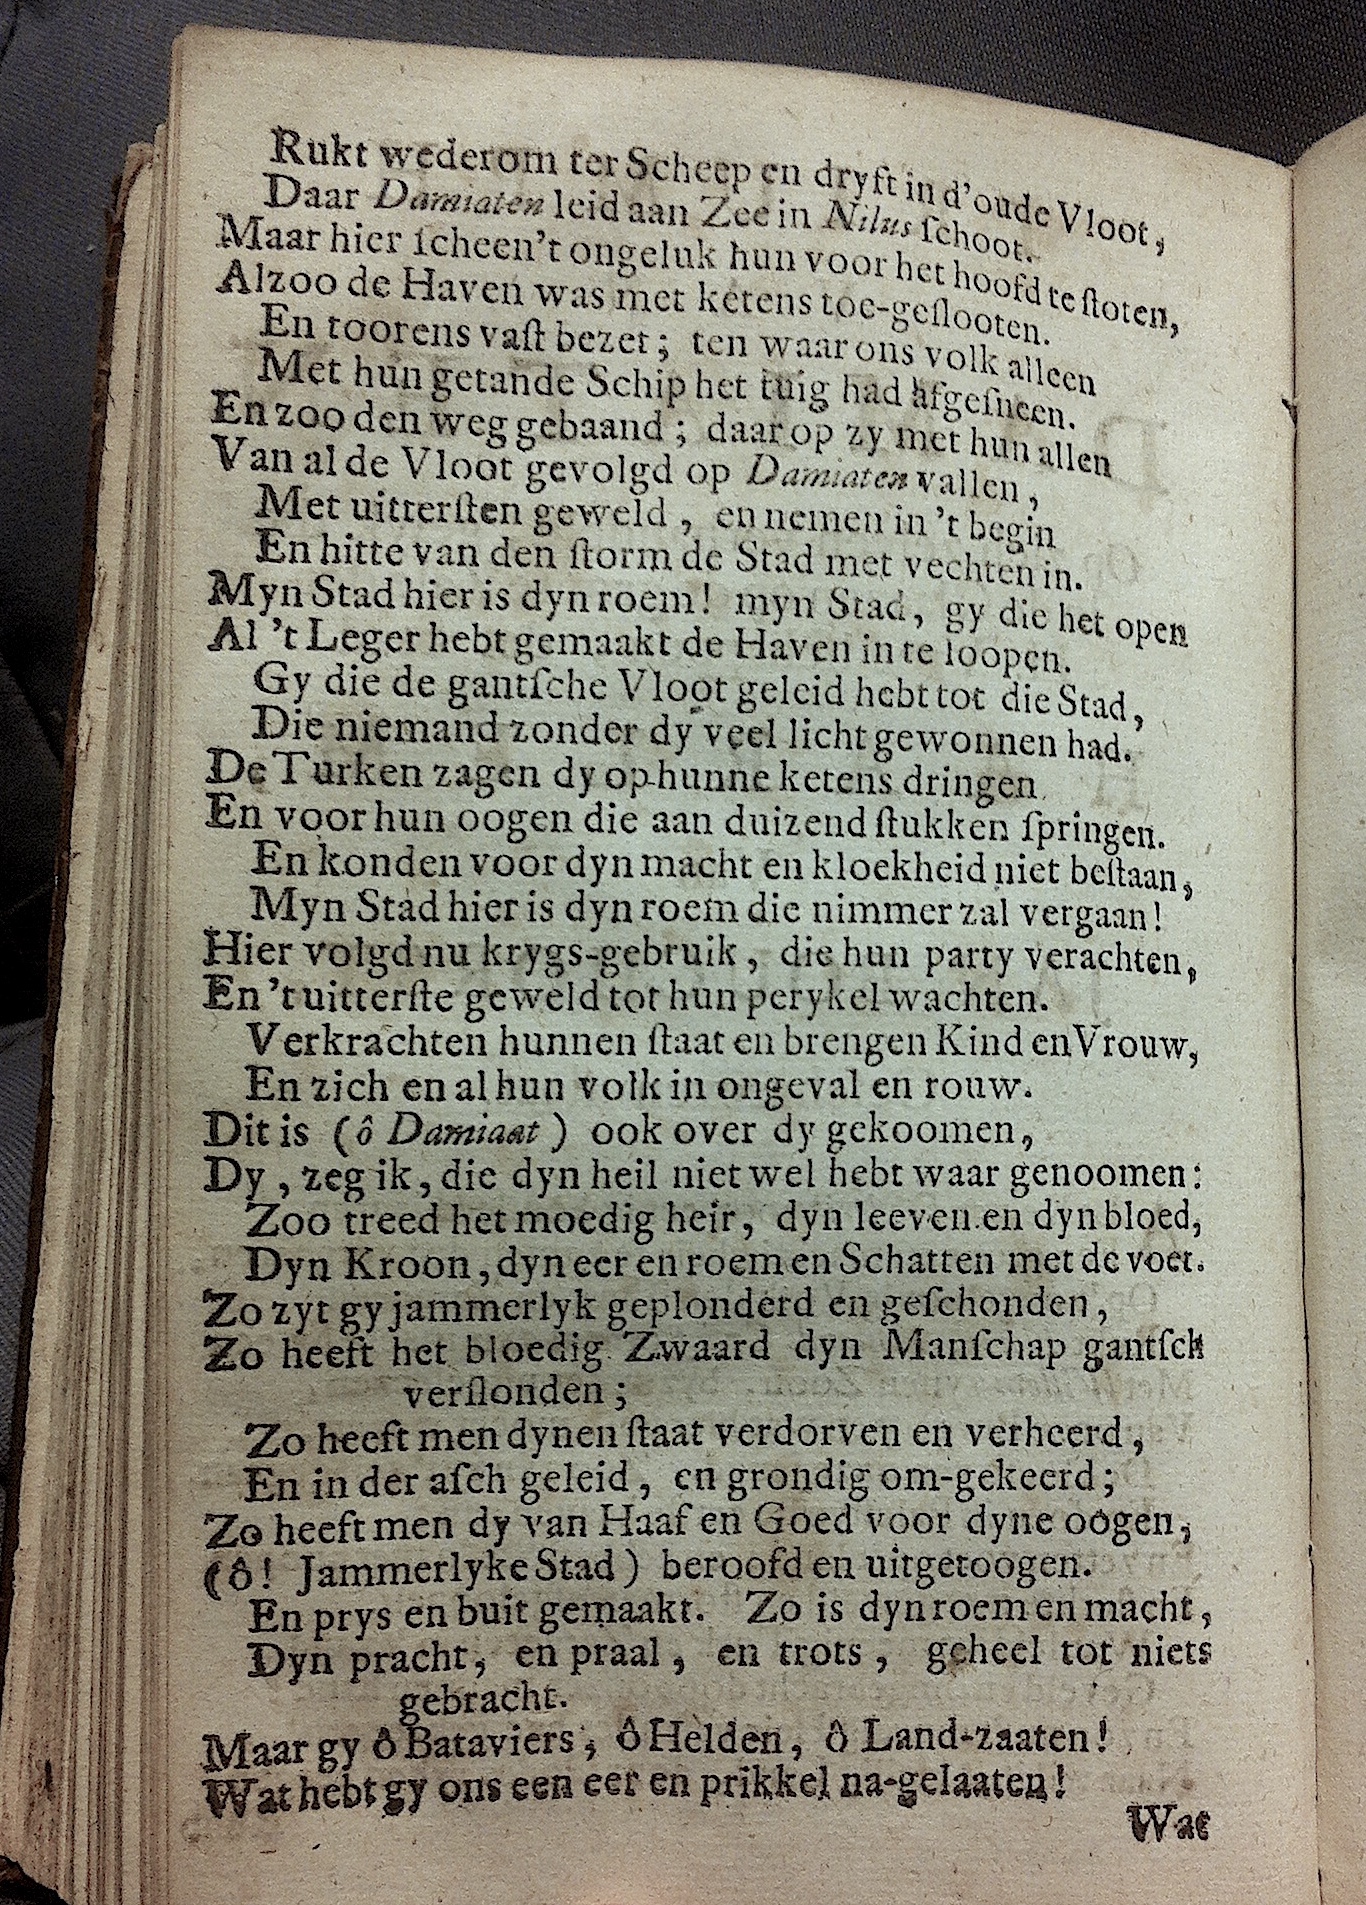 Rukt wederom ter Scheep en dryft in d'oude Vloot,
Daar Damiaten leid aan Zee in Nilus ſchoot.
Maar hier ſcheen't ongeluk hun voor het hoofd te ſtoten,
Alzoo de Haven was met ketens toe-geſlooten.
En toorens vaſt bezet; ten waar ons volk alleen
Met hun getande Schip het tuig had afgeſneen.
En zoo den weg gebaand; daar op zy met hun allen
Van al de Vloot gevolgd op Damiaten vallen,
Met uitterſten geweld, en nemen in 't begin
En hitte van den ſtorm de Stad met vechten in.
Myn Stad hier is dyn roem! myn Stad, gy die het open
Al 't Leger hebt gemaakt de Haven in te loopen.
Gy die de gantſche Vloot geleid hebt tot die Stad,
Die niemand zonder dy veel licht gewonnen had.
De Turken zagen dy op hunne ketens dringen
En voor hun oogen die aan duizend ſtukken ſpringen.
En konden voor dyn macht en kloekheid niet beſtaan,
Myn Stad hier is dyn roem die nimmer zal vergaan!
Hier volgd nu krygs-gebruik, die hun party verachten,
En 't uitterſte geweld tot hun perykel wachten.
Verkrachten hunnen ſtaat en brengen Kind en Vrouw,
En zich en al hun volk in ongeval en rouw.
Dit is (ô Damiaat) ook over dy gekoomen,
Dy, zeg ik, die dyn heil niet wel hebt waar genoomen:
Zoo treed het moedig heir, dyn leeven en dyn bloed,
Dyn Kroon, dyn eer en roem en Schatten met de voet.
Zo zyt gy jammerlyk geplonderd en geſchonden,
Zo heeft het bloedig Zwaard dyn Manſchap gantſch
verſlonden;
Zo heeft men dynen ſtaat verdorven en verheerd,
En in der aſch geleid, en grondig om-gekeerd;
Zo heeft men dy van Haaf en Goed voor dyne oogen,
(ô! Jammerlyke Stad) beroofd en uitgetoogen.
En prys en buit gemaakt. Zo is dyn roem en macht,
Dyn pracht, en praal, en trots, geheel tot niets
gebracht.
Maar gy ô Bataviers, ô Helden, ô Land-zaaten!
Wat hebt gy ons een eer en prikkel na-gelaaten!
Wat